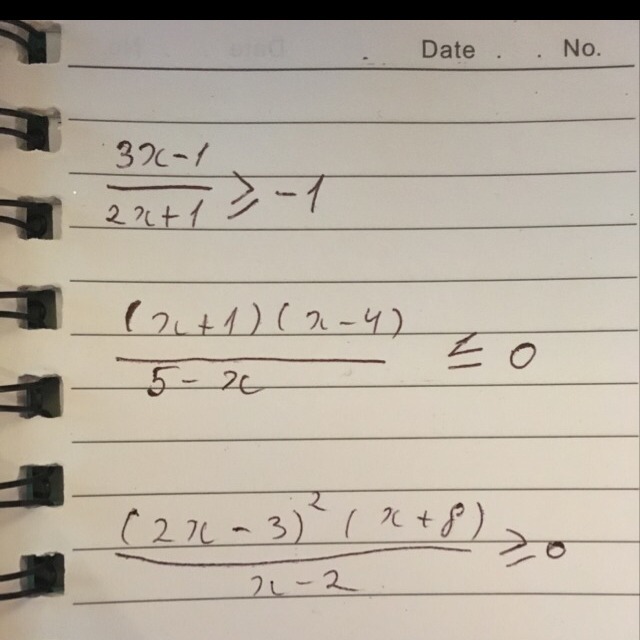 Date . . No.
3x-1
2x+1 ≥ -1
(x+1)(x-4)
5-x ≤ 0
(2x-3)² (x+8)
x-2 ≥ 0